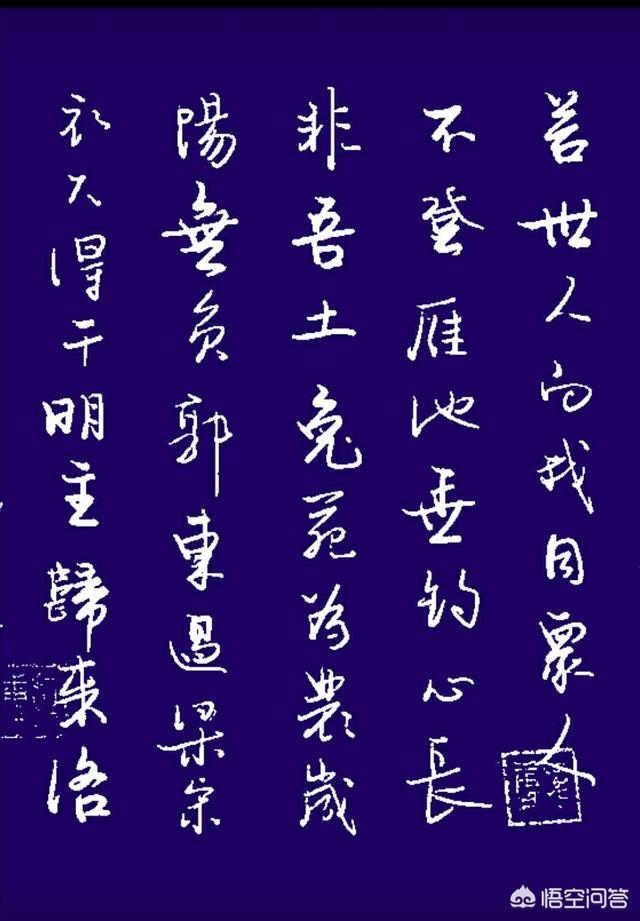 衣不得干明主歸來洛
陽無負郭東過梁宋
非吾土兔苑為農歲
不登雁池垂釣心長
苦世人向我同眾人
悟空问答